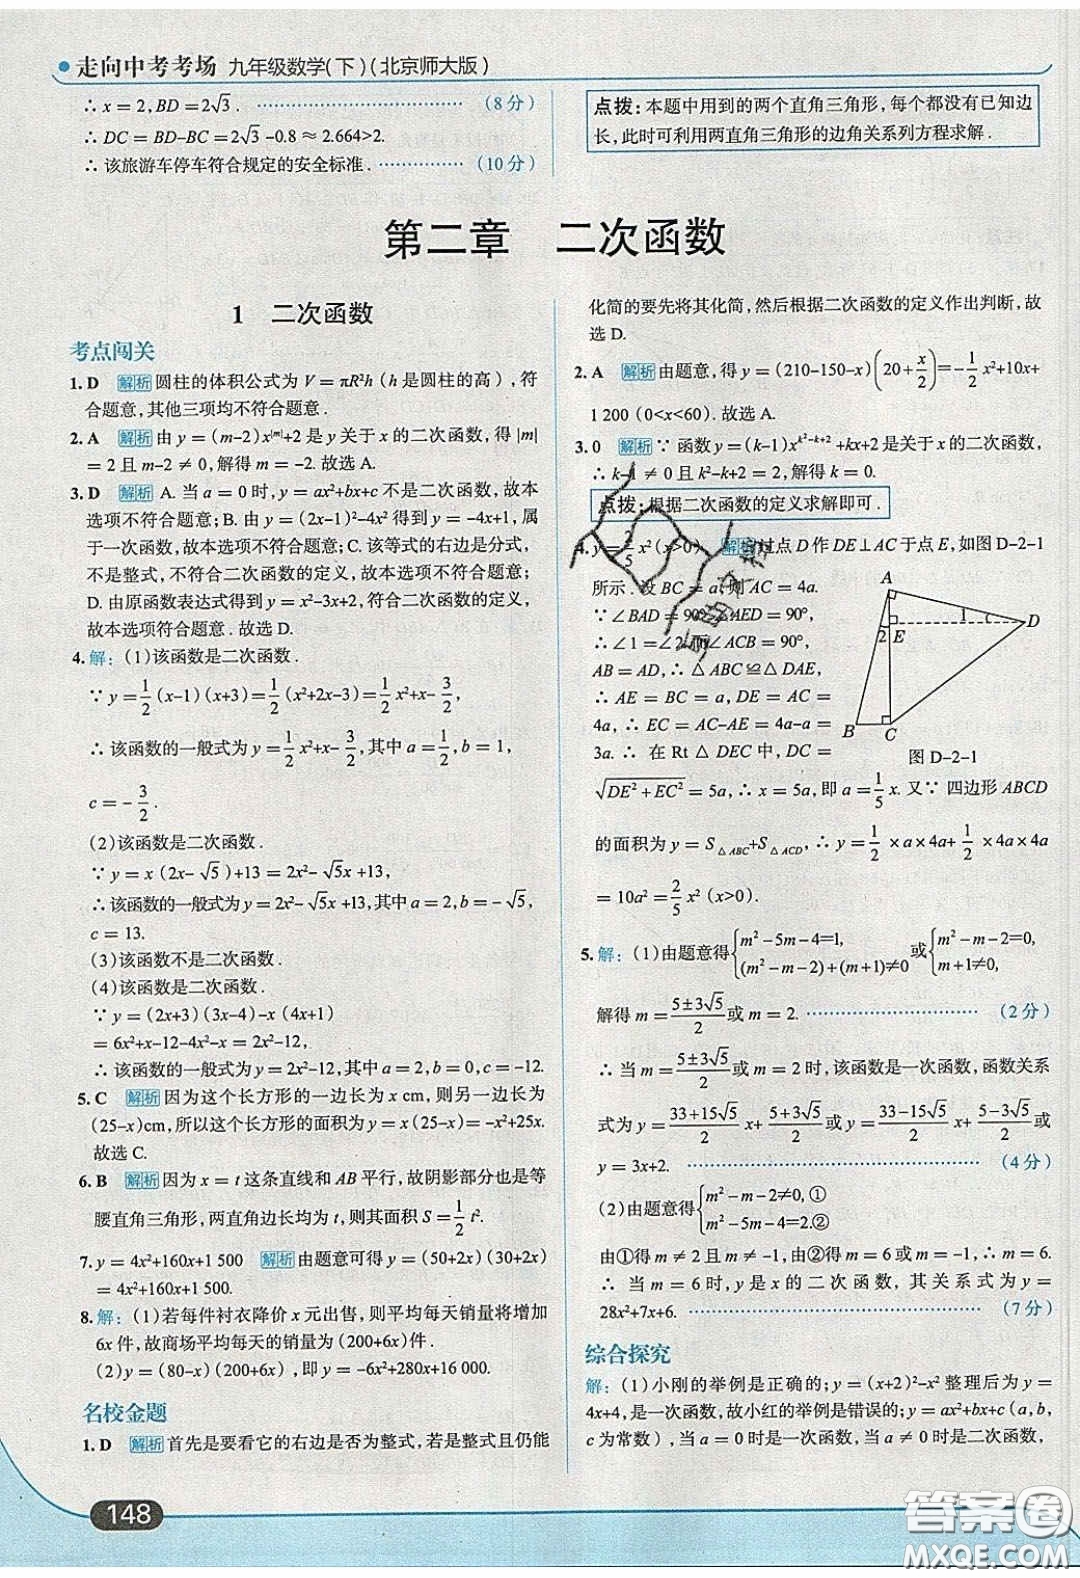 走向中考考场 九年级数学(下)(北京师大版)
∴ x = 2, BD = 2√3 . (8分)
∴ DC = BD-BC = 2√3 -0.8 ≈ 2.664>2.
∴ 该旅游车停车符合规定的安全标准 . (10分)
点拨：本题中用到的两个直角三角形，每个都没有已知边
长，此时可利用两直角三角形的边角关系列方程求解 .
第二章 二次函数
1 二次函数
考点闯关
1. D 解析 圆柱的体积公式为 V = πR²h ( h 是圆柱的高 ) ，符
合题意，其他三项均不符合题意 .
2. A 解析 由 y = (m-2)x^|m|+2 是 y 关于 x 的二次函数，得 |m|
= 2 且 m-2 ≠ 0，解得 m = -2. 故选 A.
3. D 解析 A. 当 a = 0 时，y = ax²+bx+c 不是二次函数，故本
选项不符合题意；B. 由 y = (2x-1)²-4x² 得到 y = -4x+1，属
于一次函数，故本选项不符合题意；C. 该等式的右边是分式，
不是整式，不符合二次函数的定义，故本选项不符合题意；
D. 由原函数表达式得到 y = x²-3x+2，符合二次函数的定义，
故本选项符合题意 . 故选 D.
4. 解：(1)该函数是二次函数 .
∵ y = 1/2 (x-1)(x+3) = 1/2 (x²+2x-3) = 1/2 x²+x- 3/2 ,
∴ 该函数的一般式为 y = 1/2 x²+x- 3/2 ，其中 a = 1/2 , b = 1,
c = - 3/2 .
(2)该函数是二次函数 .
∵ y = x (2x- √5 )+13 = 2x²- √5x +13,
∴ 该函数的一般式为 y = 2x²- √5x +13，其中 a = 2, b = -√5,
c = 13.
(3)该函数不是二次函数 .
(4)该函数是二次函数 .
∵ y = (2x+3)(3x-4)-x (4x+1)
= 6x²+x-12-4x²-x = 2x²-12,
∴ 该函数的一般式为 y = 2x²-12，其中 a = 2, b = 0, c = -12.
5. C 解析 因为这个长方形的一边长为 x cm，则另一边长为
(25-x)cm，所以这个长方形的面积为 y = x (25-x) = -x²+25x.
故选 C.
6. B 解析 因为 x = t 这条直线和 AB 平行，故阴影部分也是等
腰直角三角形，两直角边长均为 t，则其面积 S = 1/2 t².
7. y = 4x²+160x+1 500 解析 由题意可得 y = (50+2x)(30+2x)
= 4x²+160x+1 500.
8. 解：(1)若每件衬衣降价 x 元出售，则平均每天销量将增加
6x 件，故商场平均每天的销量为 (200+6x)件 .
(2)y = (80-x)(200+6x)，即 y = -6x²+280x+16 000.
名校金题
1. D 解析 首先是要看它的右边是否为整式，若是整式且仍能
化简的要先将其化简，然后根据二次函数的定义作出判断，故
选 D.
2. A 解析 由题意，得 y = (210-150-x)(20+ x/2) = - 1/2 x²+10x+
1 200 (0<x<60). 故选 A.
3. 0 解析 ∵ 函数 y = (k-1)x^(k²-k+2) +kx+2 是关于 x 的二次函数，
∴ k-1 ≠ 0 且 k²-k+2 = 2，解得 k = 0.
点拨：根据二次函数的定义求解即可 .
4. y = 2/5 x² (x>0) 解析 过点 D 作 DE⊥AC 于点 E，如图 D-2-1
所示 . 设 BC = a，则 AC = 4a.
∵ ∠BAD = 90°, ∠AED = 90°,
∴ ∠1 = ∠2. 而 ∠ACB = 90°,
AB = AD, ∴ △ABC ≌ △DAE,
∴ AE = BC = a, DE = AC =
4a, ∴ EC = AC-AE = 4a-a =
3a. ∴ 在 Rt △ DEC 中，DC =
√(DE² + EC²) = 5a, ∴ x = 5a, 即 a = 1/5 x. 又∵ 四边形 ABCD
的面积为 y = S△ABC+S△ACD, ∴ y = 1/2 ×a×4a+ 1/2 ×4a×4a
= 10a² = 2/5 x² (x>0).
A
1
D
2
E
B
C
图 D-2-1
5. 解：(1)由题意得{m²-5m-4=1, (m²-m-2)+(m+1)≠0 或{m²-m-2=0, m+1≠0,
解得 m = (5±3√5)/2 或 m = 2. (2分)
∴ 当 m = (5±3√5)/2 或 m = 2 时，该函数是一次函数，函数关系
式为 y = (33+15√5)/2 x+ (5+3√5)/2 或 y = (33-15√5)/2 x+ (5-3√5)/2 或
y = 3x+2. (4分)
(2)由题意得{m²-m-2≠0, ① m²-5m-4=2. ②
由①得 m ≠ 2 且 m ≠ -1，由②得 m = 6 或 m = -1, ∴ m = 6.
∴ 当 m = 6 时，y 是 x 的二次函数，其关系式为 y =
28x²+7x+6. (7分)
综合探究
解：(1)小刚的举例是正确的；y = (x+2)²-x² 整理后为 y =
4x+4，是一次函数，故小红的举例是错误的；y = ax²+bx+c (a, b,
c 为常数)，当 a = 0 时是一次函数，当 a ≠ 0 时是二次函数，
148
答案圈
MXQE.COM